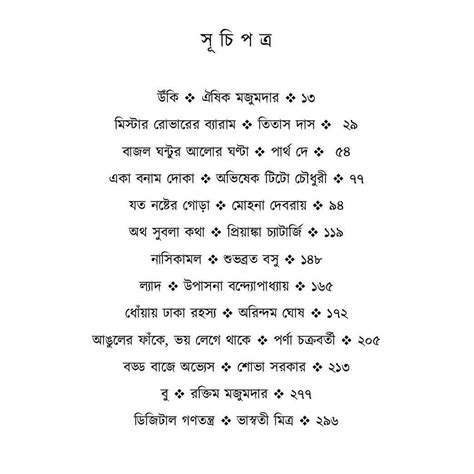 সূ চি প ত্র
উঁকি ❖ ঐষিক মজুমদার ❖ ১৩
মিস্টার রোভারের ব্যারাম ❖ তিতাস দাস ❖ ২৯
বাজল ঘন্টুর আলোর ঘণ্টা ❖ পার্থ দে ❖ ৫৪
একা বনাম দোকা ❖ অভিষেক টিটো চৌধুরী ❖ ৭৭
যত নষ্টের গোড়া ❖ মোহনা দেবরায় ❖ ৯৪
অথ সুবলা কথা ❖ প্রিয়াঙ্কা চ্যাটার্জি ❖ ১১৯
নাসিকামল ❖ শুভব্রত বসু ❖ ১৪৮
ল্যাদ ❖ উপাসনা বন্দ্যোপাধ্যায় ❖ ১৬৫
ধোঁয়ায় ঢাকা রহস্য ❖ অরিন্দম ঘোষ ❖ ১৭২
আঙুলের ফাঁকে, ভয় লেগে থাকে ❖ পর্ণা চক্রবর্তী ❖ ২০৫
বড্ড বাজে অভ্যেস ❖ শোভা সরকার ❖ ২১৩
বু ❖ রক্তিম মজুমদার ❖ ২৭৭
ডিজিটাল গণতন্ত্র ❖ ভাস্বতী মিত্র ❖ ২৯৬